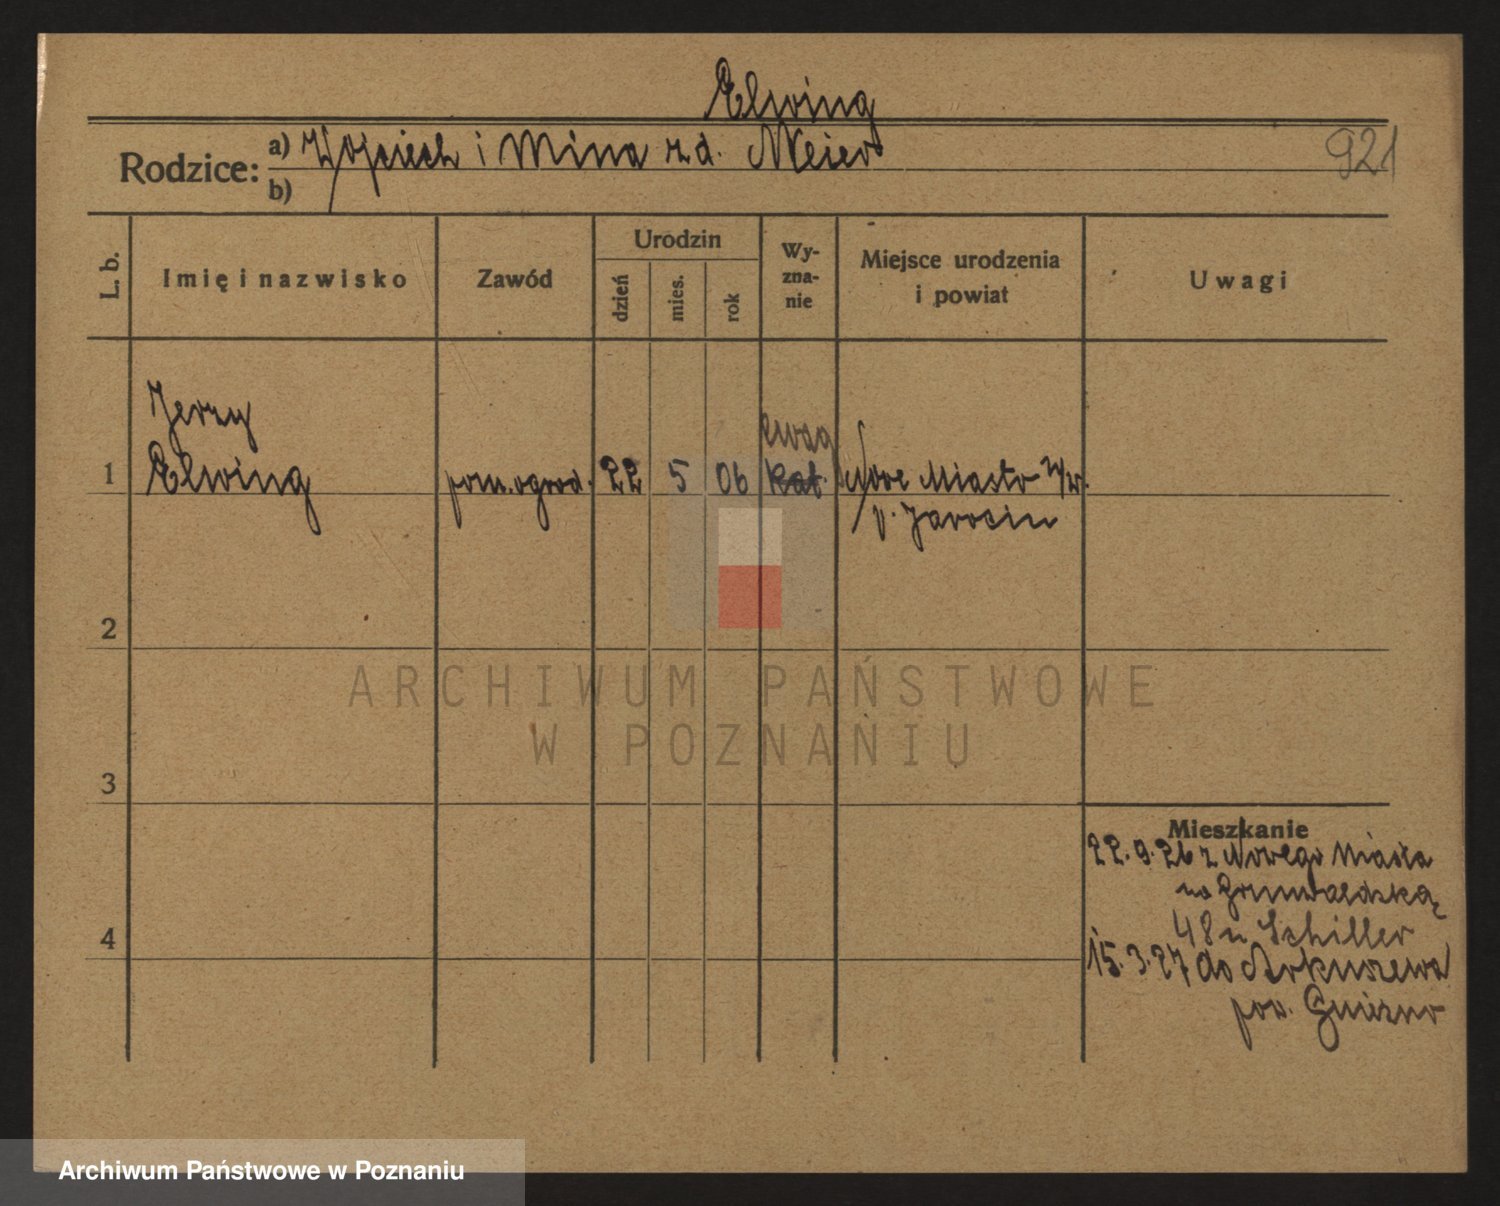 Elwing
Rodzice: a) Wojciech i Mina z d. Meier
b)
921
L. b.
Imię i nazwisko
Zawód
Urodzin
dzień
mies.
rok
Wy-
zna-
nie
Miejsce urodzenia
i powiat
Uwagi
Jerzy
ewag
1 Elwing pom. ogrod. 22 5 06 kat. Nowe Miasto n/w.
p. Jarocin
2
3
4
Mieszkanie
22.9.26 z Nowego Miasta
na Grunwaldzką
48 u Schiller
15.3.27 do Arkuszewa
pow. Gniezno
ARCHIWUM PAŃSTWOWE
W POZNANIU
Archiwum Państwowe w Poznaniu